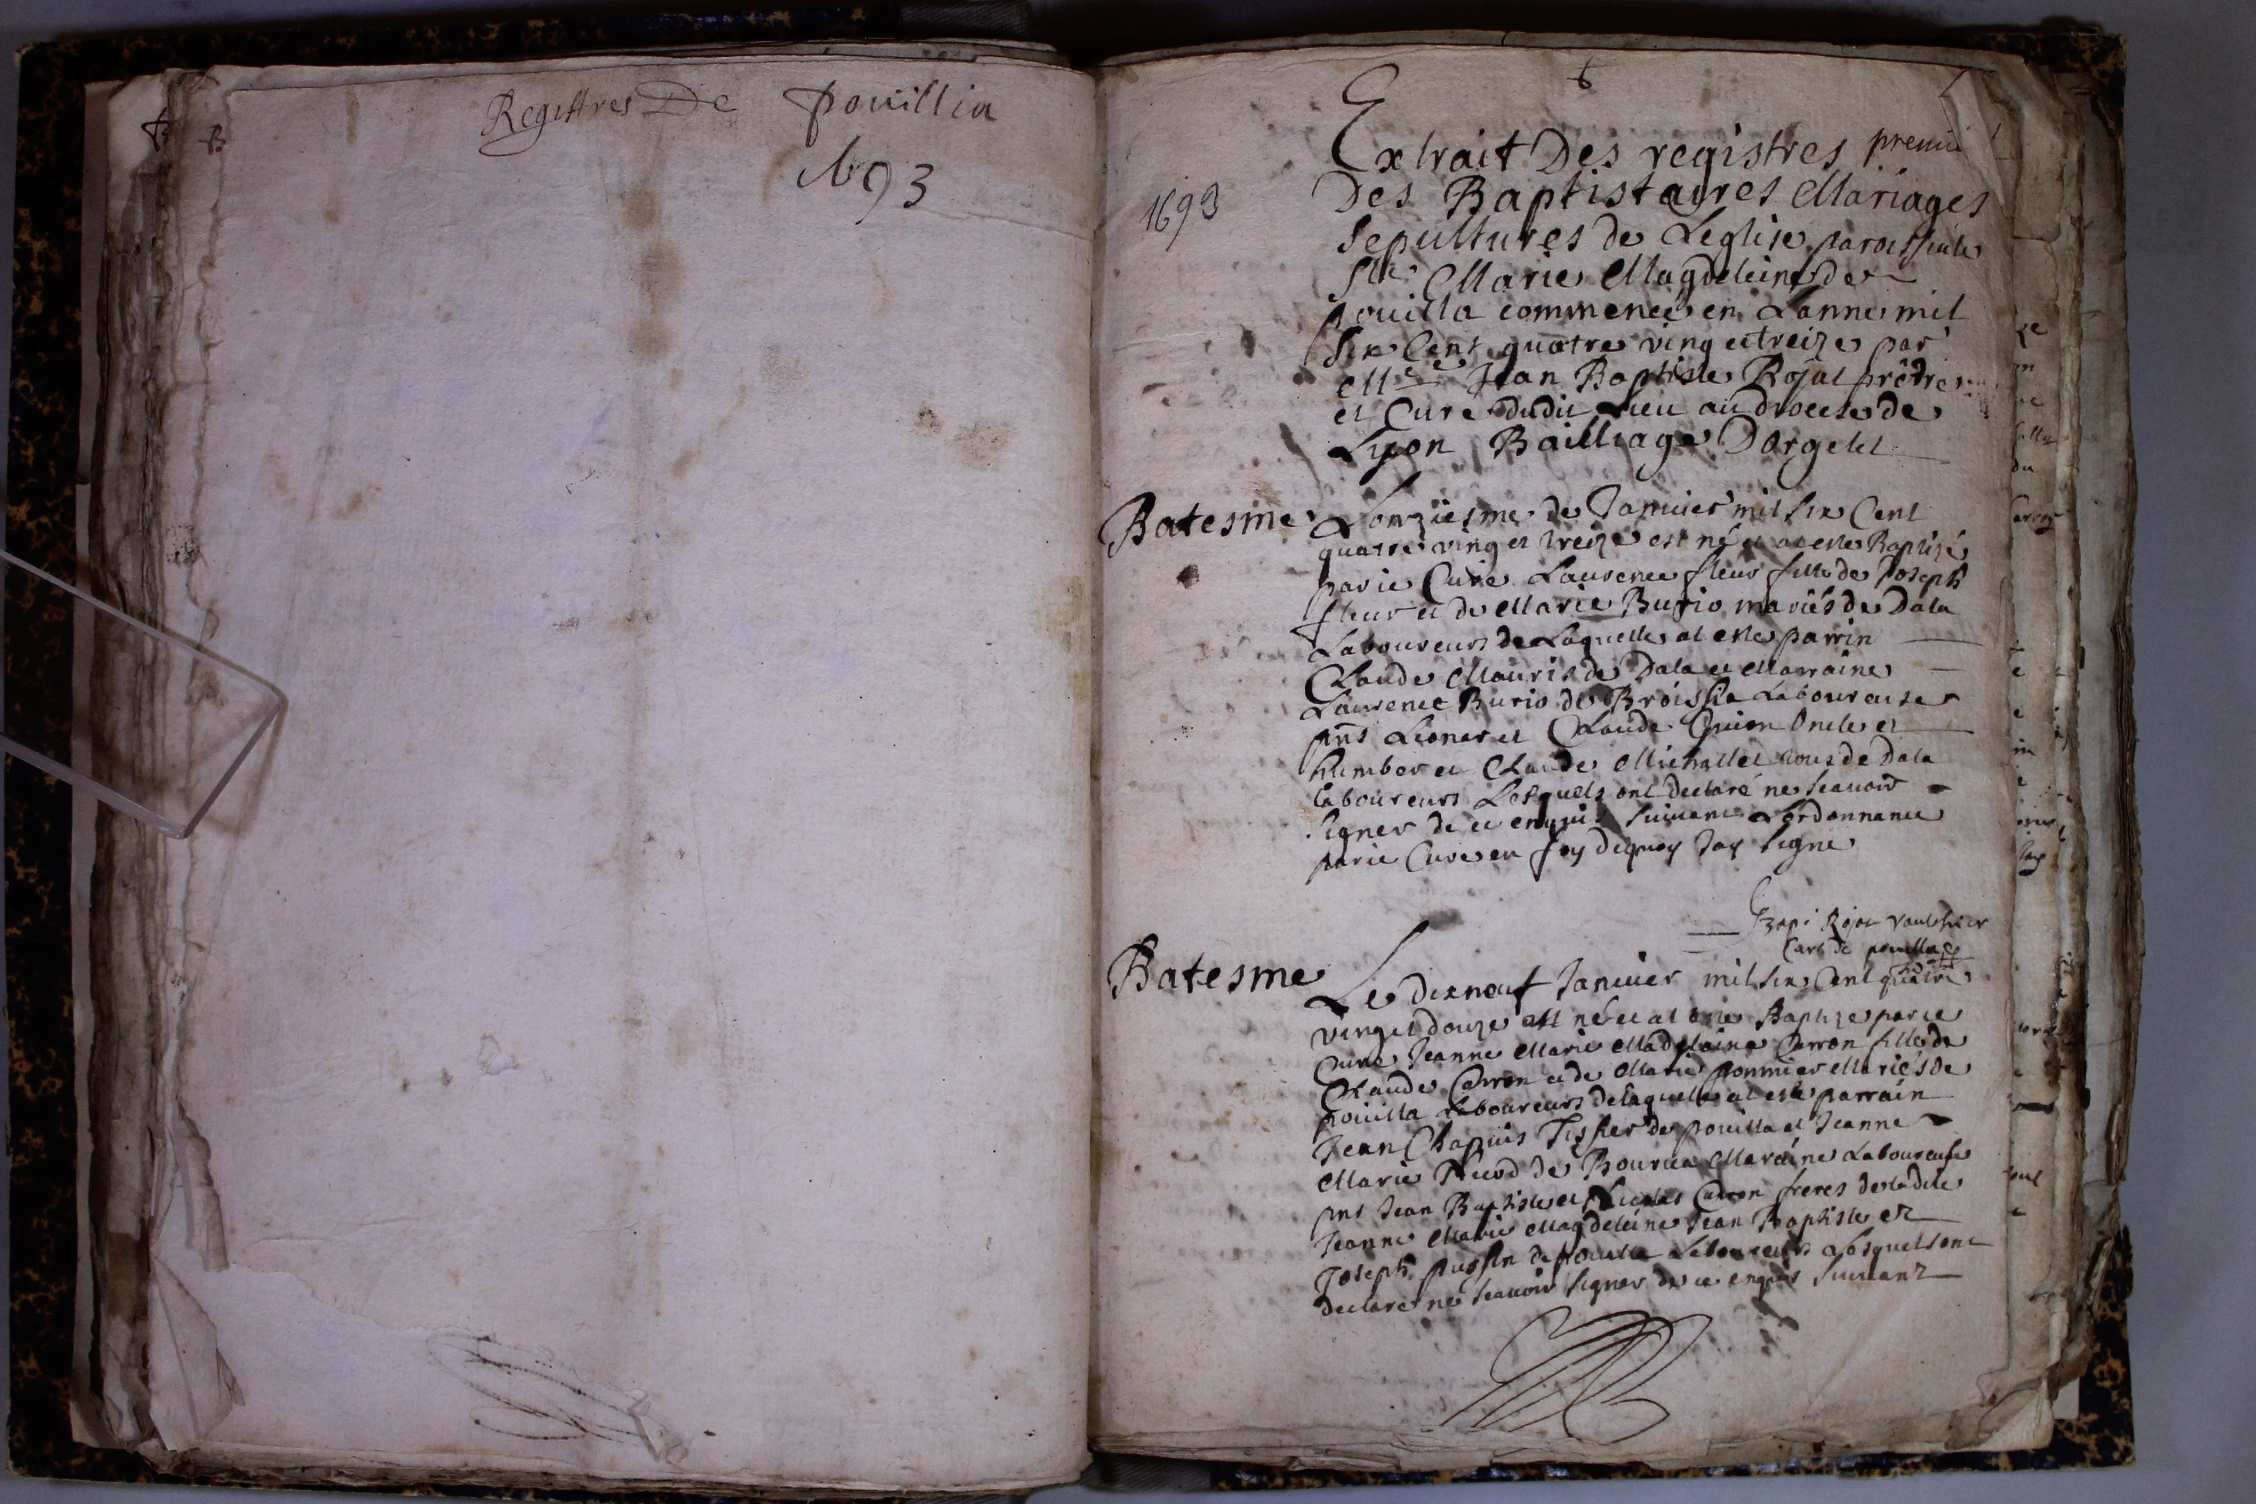 Registres De pouillia
1693
1693
Extrait Des registres premier
Des Baptistayres Mariages
Sepultures de Leglise paroissiale
Ste Marie Magdeleine de
pouilla commencé en Lanne mil
Six Cent quatre ving et treize par
Mre Jean Baptiste Rojat prêtre
et Cure dudit Lieu au diocese de
Lyon Bailliage Dorgelet
Batesme
Lonziesme de Januier mil six Cent
quatre ving et treize est né et at este Baptizé
par ie Curé Laurence fleur fille de Joseph
fleur et de Marie Burio mariés de Dala
Laboureurs de Laquelle at este parrin
Claude Mauris de Dala et Marraine
Laurence Burio de Broissia Laboureuse
pns Leonar et Claude Guion Oncle et
humber et Claude Michallet tous de Dala
laboureurs Lesquels ont declaré ne scauoir
signer de ce enquis suiuant Lordonnance
par ie Curé en foy dequoy Jay signé
Rojat
Curé de pouilla
Batesme
Le dixneuf Januier mil six Cent quatre
vinget douze est né et at este Baptize par ie
Curé Jeanne Marie Madelaine Carron fille de
Claude Carron et de Marie pommier Mariés de
pouilla Laboureurs de laquelle at esté parrain
Jean Chapuis Tissier de pouilla et Jeanne
Marie de Maraine Laboureuse
pns Jean Baptiste et Carron freres de ladite
Jeanne Marie Magdeleine Jean Baptiste et
Joseph de pouilla Laboureurs Lesquels ont
declare ne scauoir signer de ce enquis suiuant